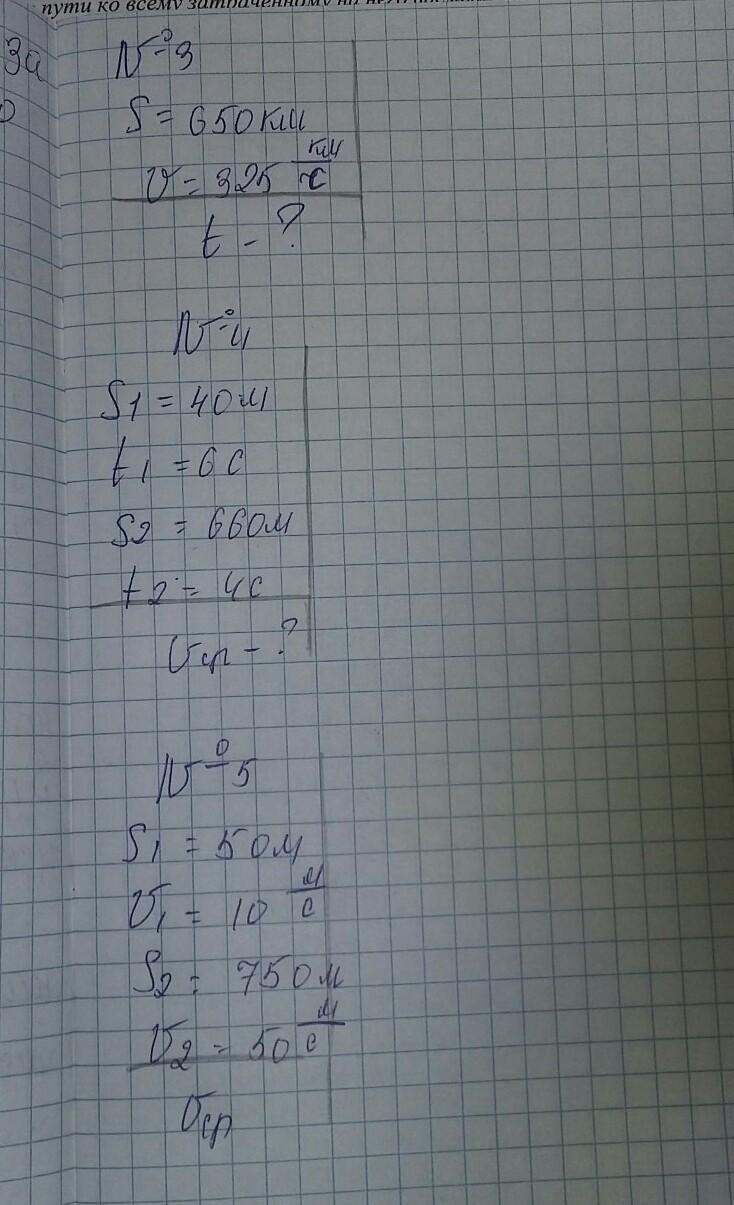 пути ко всему затраченному на
За
№3
S = 650 км
v = 325 км/с
t - ?
№4
S1 = 40 м
t1 = 6 с
S2 = 660 м
t2 = 4 с
vср - ?
№5
S1 = 50 м
v1 = 10 м/с
S2 = 750 м
v2 = 50 м/с
vср